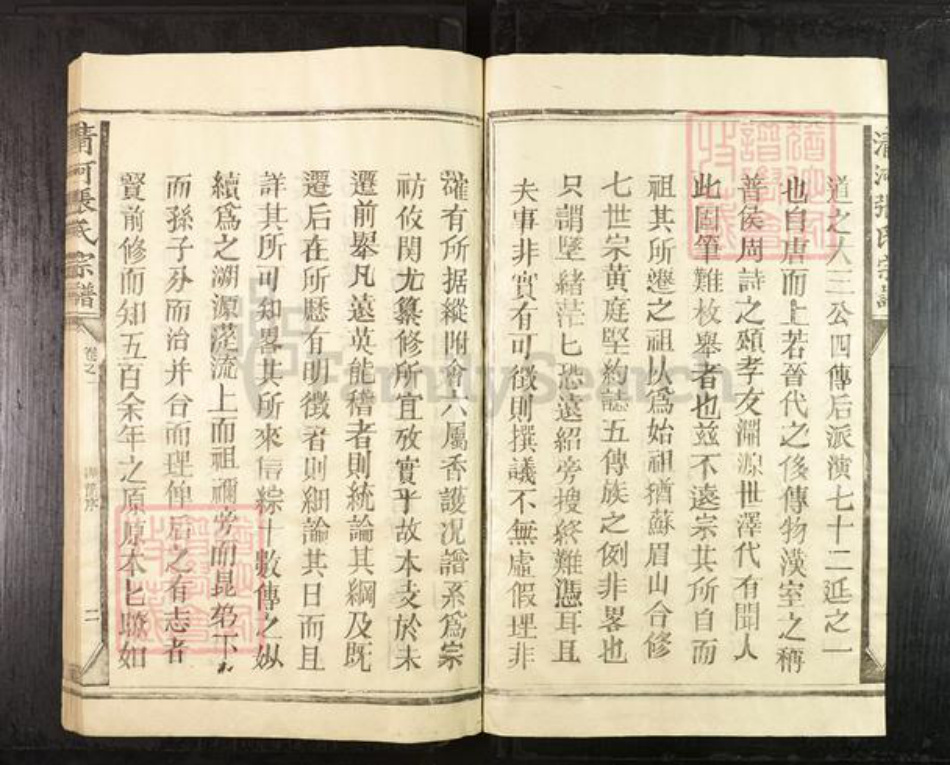 清河張氏宗譜
道之大三公四傳后派演七十二延之一
也自唐而上若晉代之俊傳物漢室之稱
普侯周詩之頌孝友淵源世澤代有聞人
此固筆難枚舉者也兹不遠宗其所自而
祖其所遷之祖以為始祖猶蘇眉山合修
七世宗黄庭堅約誌五傳族之例非畧也
只謂墜緒茫匕恐遠紹旁搜終難憑耳且
夫事非實有可徵則撰議不無虛假理非
確有所据縱附會亦屬香護况譜系為宗
祊攸関尤纂修所宜攷實乎故本支於未
遷前舉凡遠英能稽者則統論其綱及既
遷后在所歷有明徵者則細論其日而且
詳其所可知畧其所來信綜十數傳之
續為之溯源涯流上而祖禰旁而昆弟下
而孫子分而治并合而理俾后之有志者
賢前修而知五百余年之原原本匕瞭如
清河張氏宗譜
卷之一
二
FamilySearch